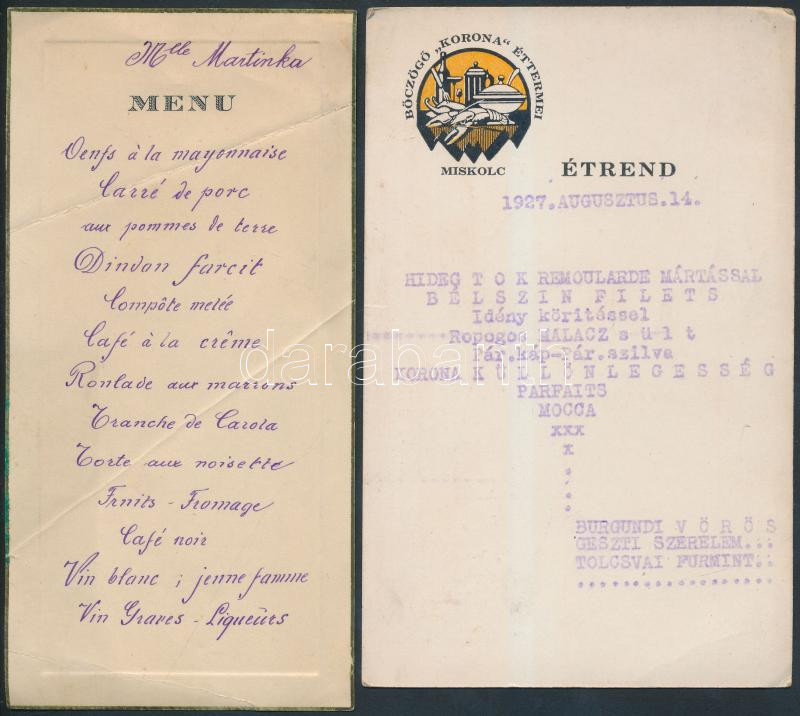 Mlle Martinka
MENU
Oenfs à la mayonnaise
Carré de porc
aux pommes de terre
Dindon farcit
Compôte melée
Café à la crême
Roulade aux marrons
Tranche de Carola
Torte aux noisette
Fruits - Fromage
Café noir
Vin blanc ; jenne famme
Vin Graves - Liqueürs
BŐCZÖGŐ „KORONA“ ÉTTERMEI
MISKOLC
ÉTREND
1927.AUGUSZTUS.14.
HIDEG T O K REMOULARDE MÁRTÁSSAL
B É L S Z I N F I L E T S
Idény köritéssel
Ropogos MALACZ s ü l t
Pár.káp-Pár.szilva
KORONA K Ü L L Ö N L E G E S S É G
PARFAITS
MOCCA
xxx
x
BURGUNDI V Ö R Ö S
GESZTI SZERELEM...
TOLCSVAI FURMINT..
darabanth.com